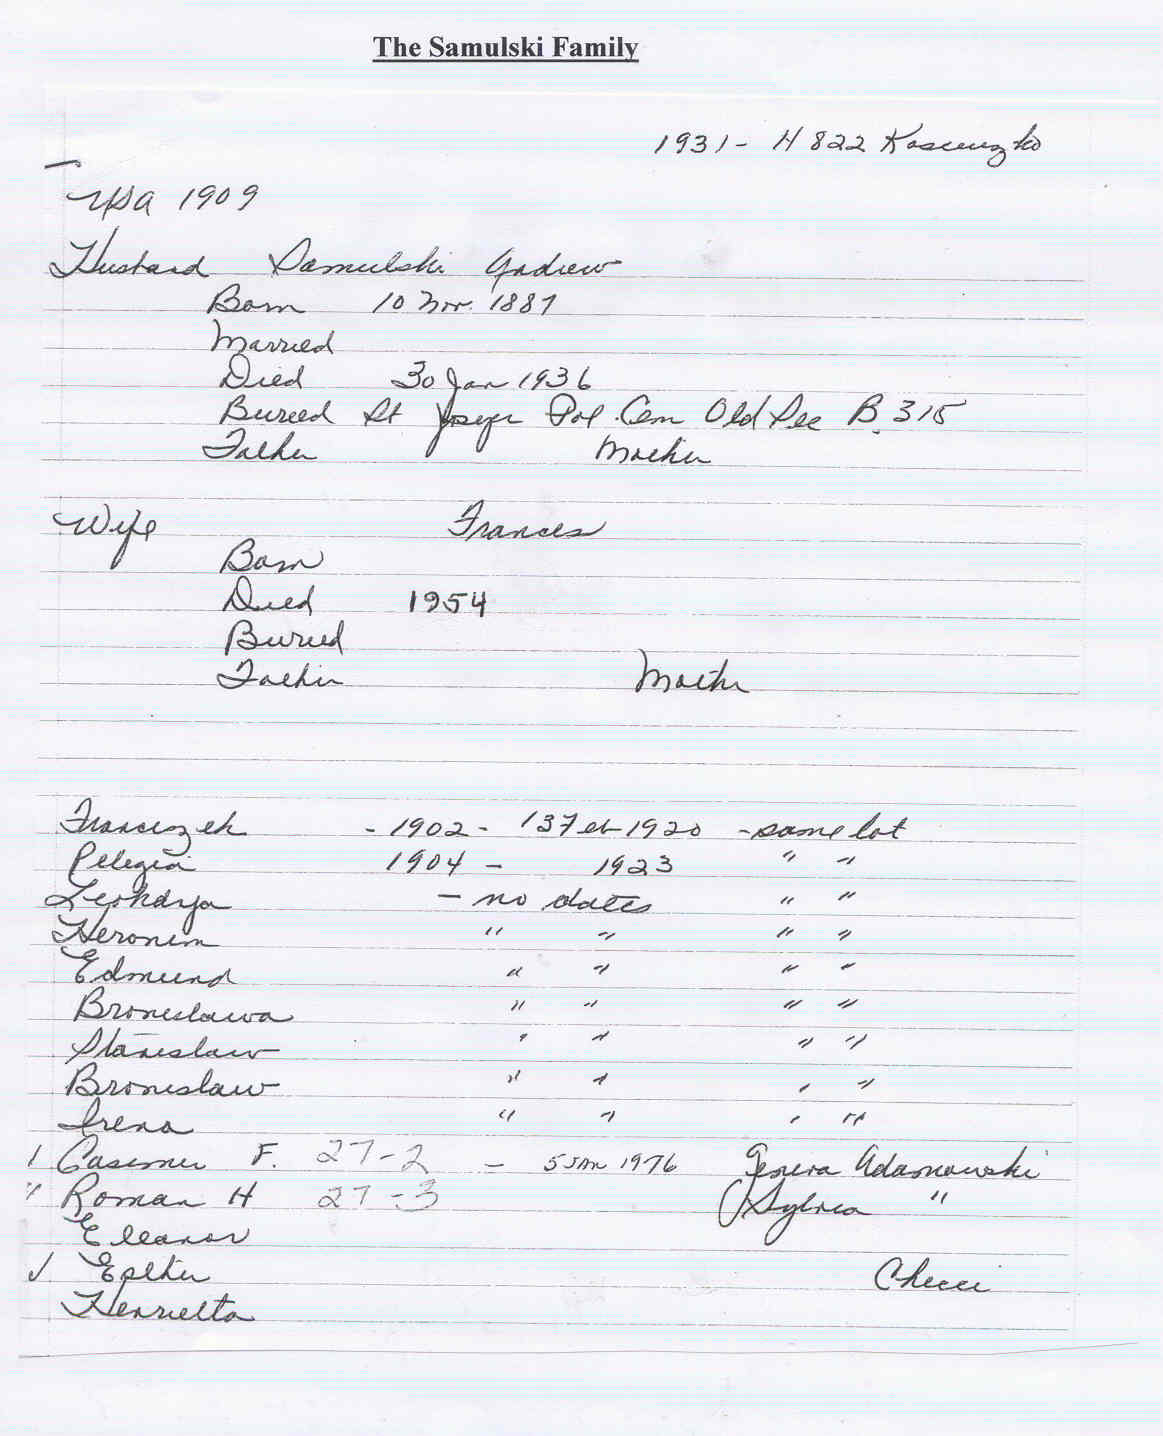 The Samulski Family
1931 - H 822 Kosciuszko
USA 1909
Husband Samulski Andrew
Born 10 Nov. 1887
Married
Died 30 Jan 1936
Buried St Pol. Cem Old Sec B. 315
Father Mother
Wife Frances
Born
Died 1954
Buried
Father Mother
Franciszek - 1902 - 13 Feb 1920 - same lot
Pelegia 1904 - 1923 " "
Leokadya - no dates " "
Heronim " " " "
Edmund " " " "
Bronislawa " " " "
Stanislaw " " " "
Bronislaw " " " "
Irena " " " "
Casimer F. 27-2 - 5 JAN 1976 Adamowski
Roman H 27-3 Sylvia "
Eleanor
√ Esther Checci
Henrietta